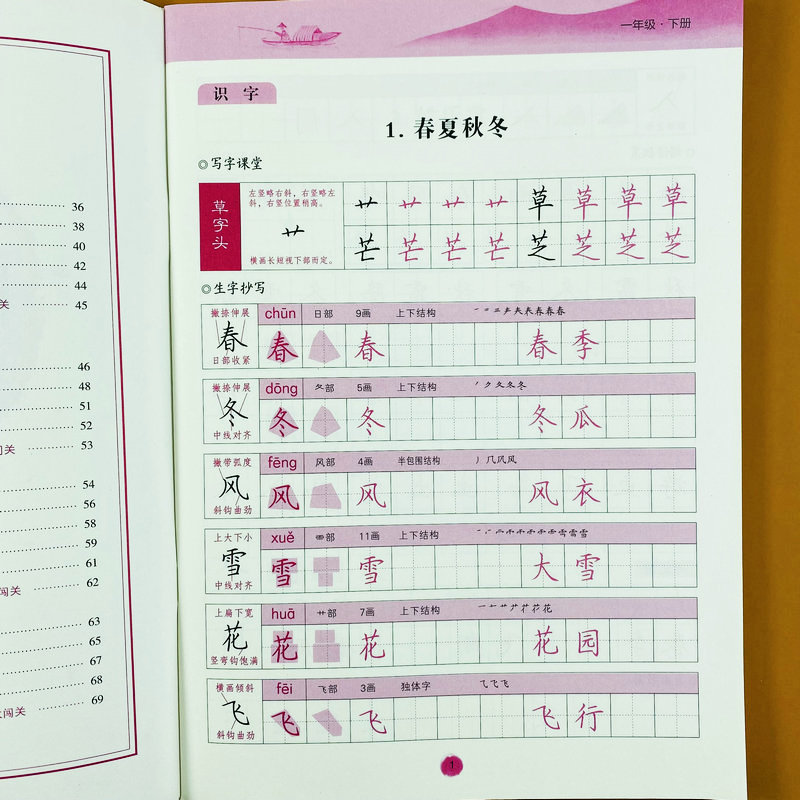 36
38
40
42
44
关 45
46
48
51
52
闯关 53
54
56
58
59
61
闯关 62
63
65
67
68
闯关 69
一年级·下册
识 字
1. 春夏秋冬
◎写字课堂
草字头
左竖略右斜，右竖略左
斜，右竖位置稍高。
艹
横画长短视下部而定。
艹 艹 艹 艹 草 草 草 草
芒 芒 芒 芒 芝 芝 芝 芝
◎生字抄写
撇捺伸展 chūn 日部 9画 上下结构
春 春 春 春 季
日部收紧
撇捺伸展 dōng 夂部 5画 上下结构
冬 冬 冬 冬 瓜
中线对齐
撇带弧度 fēng 风部 4画 半包围结构
风 风 风 风 衣
斜钩曲劲
上大下小 xuě 部 11画 上下结构
雪 雪 雪 大 雪
中线对齐
上扁下宽 huā 艹部 7画 上下结构
花 花 花 花 园
竖弯钩饱满
横画倾斜 fēi 飞部 3画 独体字
飞 飞 飞 飞 行
斜钩曲劲
1